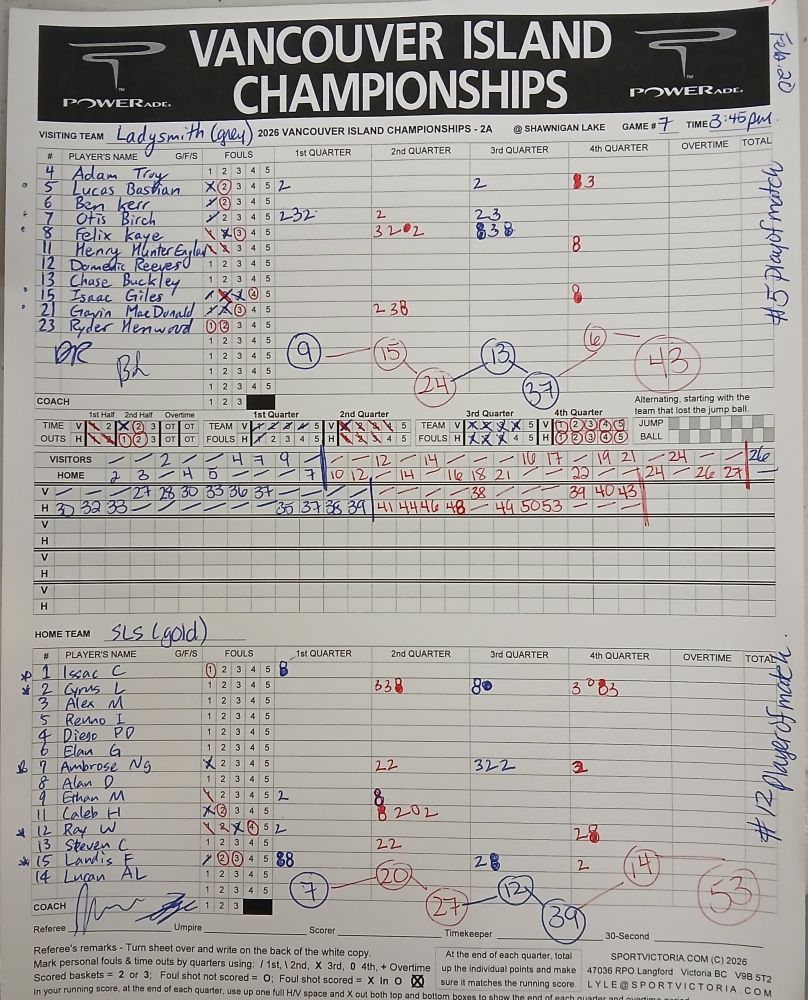 VANCOUVER ISLAND
CHAMPIONSHIPS
POWERADE.
POWERADE.
Feb. 20
VISITING TEAM Ladysmith (grey) 2026 VANCOUVER ISLAND CHAMPIONSHIPS - 2A @ SHAWNIGAN LAKE GAME # 7 TIME 3:45 pm.
# PLAYER'S NAME G/F/S FOULS 1ST QUARTER 2ND QUARTER 3RD QUARTER 4TH QUARTER OVERTIME TOTAL
4 Adam Troy 1 2 3 4 5
5 Lucas Bastian X 2 3 4 5 2 2 3
6 Ben Kerr 2 3 4 5
7 Otis Birch 2 3 4 5 2 3 2 2 2 3
8 Felix Kaye X 3 4 5 3 2 0 2 3
11 Henry Hunter England 3 4 5
12 Domenic Reeves 1 2 3 4 5
13 Chase Buckley 1 2 3 4 5
15 Isaac Giles 4 5
21 Gavin MacDonald 3 4 5 2 3
23 Ryder Henwood 1 2 3 4 5
1 2 3 4 5
1 2 3 4 5
1 2 3 4 5
1 2 3 4 5
9 15 24 13 37 6 43
COACH 1 2 3
#5 Play of match
1st Half 2nd Half Overtime 1st Quarter 2nd Quarter 3rd Quarter 4th Quarter
Alternating, starting with the
team that lost the jump ball.
TIME V 2 X 2 3 OT OT TEAM V 5 V 5 TEAM V X X X X 5 V 1 2 3 4 5 JUMP
OUTS H 1 2 3 OT OT FOULS H 2 3 4 5 H 5 FOULS H X X X 4 5 H 1 2 3 4 5 BALL
VISITORS – – 2 – – 4 7 9 – – – – 12 – 14 – – – – 16 17 – 19 21 – 24 – – 26
HOME 2 3 – 4 5 – – – – 7 10 12 – 14 – 16 18 21 – – – 22 – – 24 – 26 27 –
V – – – 27 28 30 33 36 37 – – – – – – – 38 – – – 39 40 43
H 30 32 33 – – – – – – 35 37 38 39 41 44 46 48 – 49 50 53 – – –
V
H
V
H
V
H
HOME TEAM SLS (gold)
# PLAYER'S NAME G/F/S FOULS 1ST QUARTER 2ND QUARTER 3RD QUARTER 4TH QUARTER OVERTIME TOTAL
1 Issac C 1 2 3 4 5
2 Cyrus L 1 2 3 4 5
3 Alex M 1 2 3 4 5
5 Remo I 1 2 3 4 5
4 Diego PD 1 2 3 4 5
6 Elan G 1 2 3 4 5
7 Ambrose Ng X 2 3 4 5 2 2 3 2 2
8 Alan D 1 2 3 4 5
9 Ethan M 2 3 4 5 2
11 Caleb H X 2 3 4 5 2 0 2
12 Ray W X 4 5 2 2
13 Steven C 1 2 3 4 5 2 2
15 Landis F 2 3 4 5 2 2
14 Lucan AL 1 2 3 4 5
1 2 3 4 5
7 20 27 12 39 14 53
COACH 1 2 3
#12 Player of match
Referee Umpire Scorer Timekeeper 30-Second
Referee's remarks - Turn sheet over and write on the back of the white copy.
Mark personal fouls & time outs by quarters using: / 1st, \ 2nd, X 3rd, 0 4th, + Overtime
Scored baskets = 2 or 3; Foul shot not scored = O; Foul shot scored = X in O
In your running score, at the end of each quarter, use up one full H/V space and X out both top and bottom boxes to show the end of each quarter and overtime period.
At the end of each quarter, total
up the individual points and make
sure it matches the running score.
SPORTVICTORIA.COM (C) 2026
47036 RPO Langford Victoria BC V9B 5T2
LYLE@SPORTVICTORIA.COM